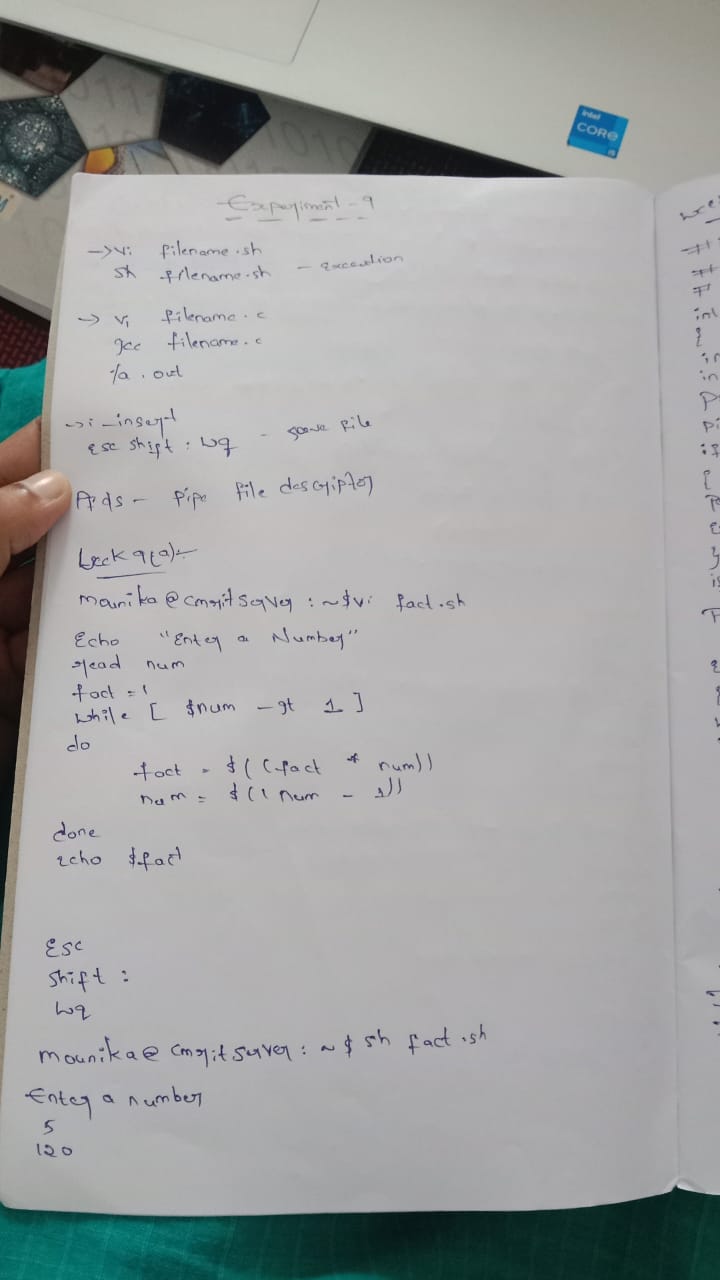 intel
CORE
i5
Experiment - 9
→ vi filename.sh
sh filename.sh - execution
→ vi filename.c
gcc filename.c
/a.out
→ i - insert
esc shift : wq - save file
Pipe file descriptor
Week 9(a):-
mounika@cmritserver:~$vi fact.sh
Echo "Enter a Number"
read num
fact = 1
while [ $num -gt 1 ]
do
fact = $((fact * num))
num = $((num - 1))
done
echo $fact
Esc
shift :
wq
mounika@cmritserver:~$ sh fact.sh
Enter a number
5
120